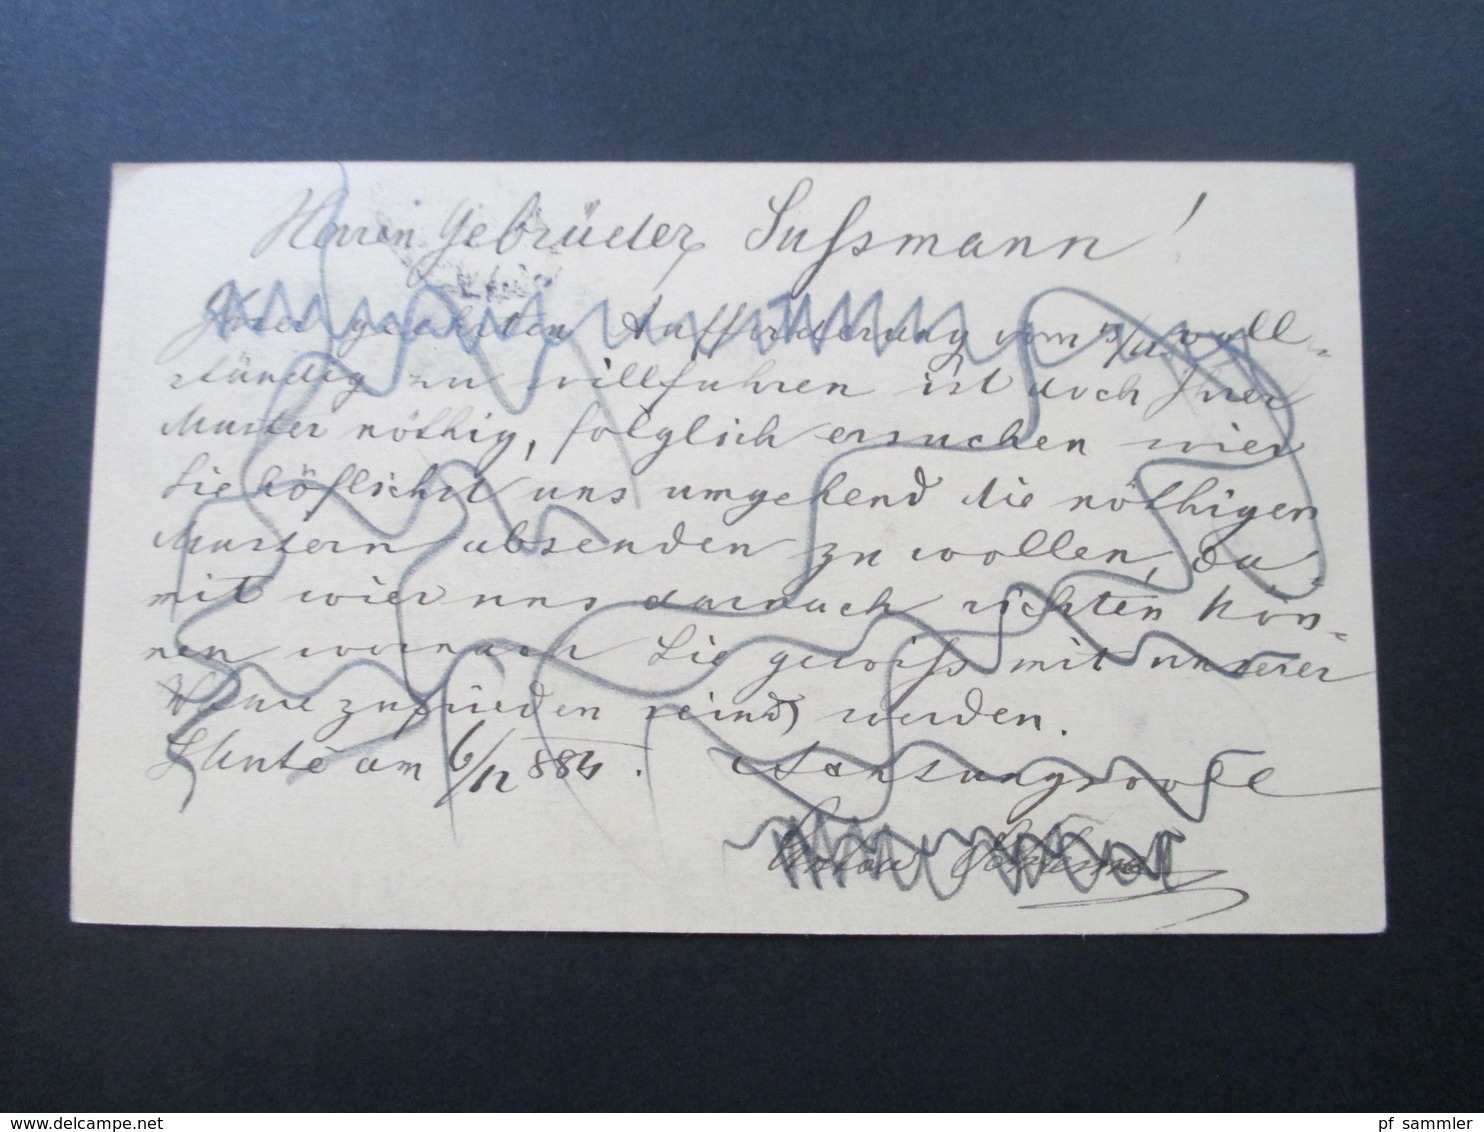 Herren Gebrüder Sußmann!
Ihrer geehrten Aufforderung vom 5/12 voll-
ständig zu willfuhren ist doch Ihrer
Muster nöthig, folglich ersuchen wier
Sie höflichst uns umgehend die nöthigen
Mustern absenden zu wollen, da-
mit wier uns darnach richten kön-
nen wornach Sie gewiß mit unserer
Ware zufrieden seind werden.
am 6/12 884. Achtungsvoll
pf_sammler
delcampe.net